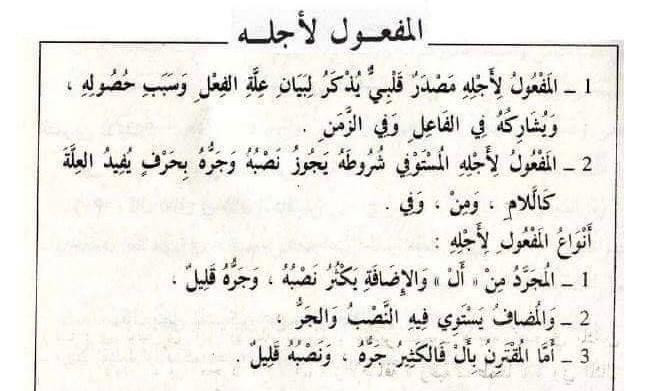 المفعـول لأجلـه
1 ـ المَفْعُولُ لِأَجْلِهِ مَصْدَرٌ قَلْبِيٌّ يُذْكَرُ لِبَيَانِ عِلَّةِ الفِعْلِ وَسَبَبِ حُصُولِهِ ،
وَيُشَارِكُهُ فِي الفَاعِلِ وَفِي الزَّمَنِ .
2 ـ المَفْعُولُ لِأَجْلِهِ المُسْتَوْفِي شُرُوطَهُ يَجُوزُ نَصْبُهُ وَجَرُّهُ بِحَرْفٍ يُفِيدُ العِلَّةَ
كَاللَّامِ ، وَمِنْ ، وَفِي .
أَنْوَاعُ المَفْعُولِ لِأَجْلِهِ :
1 ـ المُجَرَّدُ مِنْ « أَلْ » وَالإِضَافَةِ يَكْثُرُ نَصْبُهُ ، وَجَرُّهُ قَلِيلٌ .
2 ـ وَالمُضافُ يَسْتَوِي فِيهِ النَّصْبُ وَالجَرُّ .
3 ـ أَمَّا المُقْتَرِنُ بِأَلْ فَالكَثِيرُ جَرُّهُ ، وَنَصْبُهُ قَلِيلٌ .